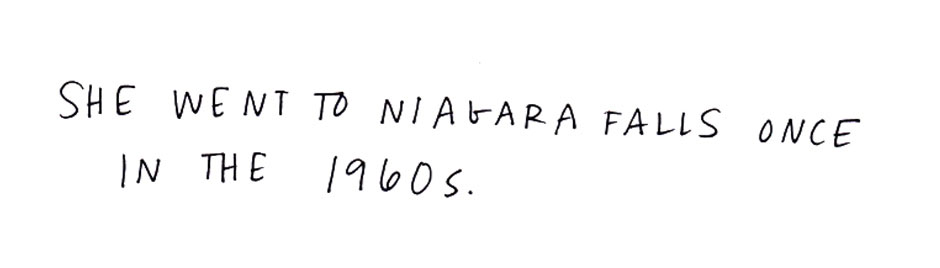 SHE WENT TO NIAGARA FALLS ONCE
IN THE 1960s.